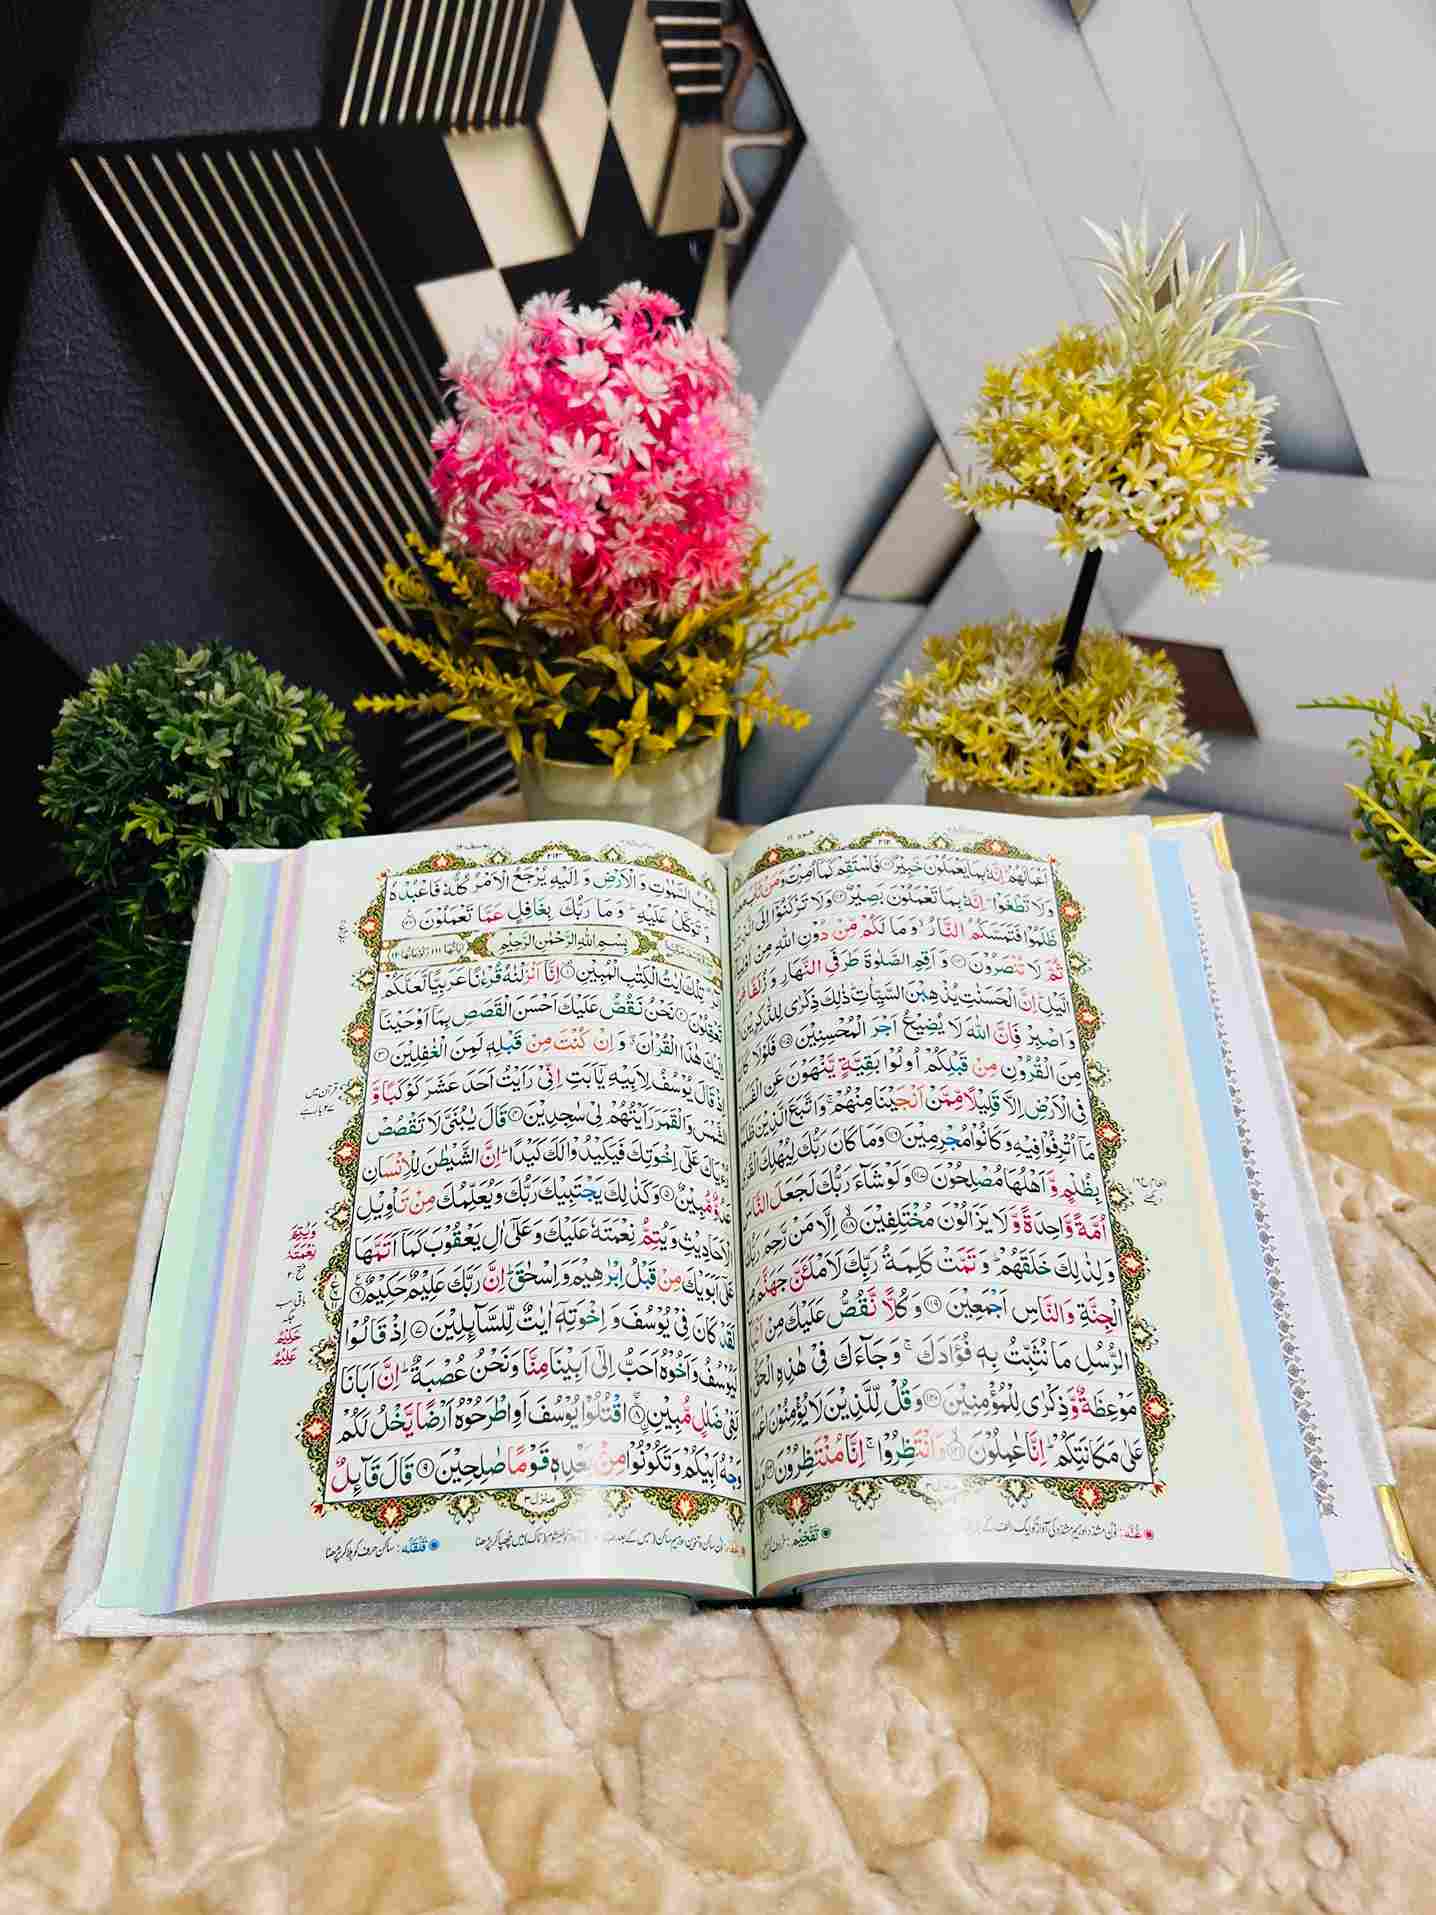 ھود ١١
٢١٢
اَعْمَالَهُمْ ؕ اِنَّهٗ بِمَا یَعْمَلُوْنَ خَبِیْرٌ ۝ فَاسْتَقِمْ كَمَاۤ اُمِرْتَ وَ مَنْ تَابَ
وَ لَا تَطْغَوْا ؕ اِنَّهٗ بِمَا تَعْمَلُوْنَ بَصِیْرٌ ۝ وَ لَا تَرْكَنُوْۤا اِلَی
ظَلَمُوْا فَتَمَسَّكُمُ النَّارُ ۙ وَ مَا لَكُمْ مِّنْ دُوْنِ اللّٰهِ مِنْ
ثُمَّ لَا تُنْصَرُوْنَ ۝ وَ اَقِمِ الصَّلٰوةَ طَرَفَیِ النَّهَارِ وَ زُلَفًا
الَّیْلِ ؕ اِنَّ الْحَسَنٰتِ یُذْهِبْنَ السَّیِّاٰتِ ؕ ذٰلِكَ ذِكْرٰی لِلذّٰكِرِیْنَ
وَ اصْبِرْ فَاِنَّ اللّٰهَ لَا یُضِیْعُ اَجْرَ الْمُحْسِنِیْنَ ۝ فَلَوْ لَا
مِنَ الْقُرُوْنِ مِنْ قَبْلِكُمْ اُولُوْا بَقِیَّةٍ یَّنْهَوْنَ عَنِ
فِی الْاَرْضِ اِلَّا قَلِیْلًا مِّمَّنْ اَنْجَیْنَا مِنْهُمْ ۚ وَ اتَّبَعَ الَّذِیْنَ
مَاۤ اُتْرِفُوْا فِیْهِ وَ كَانُوْا مُجْرِمِیْنَ ۝ وَ مَا كَانَ رَبُّكَ لِیُهْلِكَ
بِظُلْمٍ وَّ اَهْلُهَا مُصْلِحُوْنَ ۝ وَ لَوْ شَآءَ رَبُّكَ لَجَعَلَ النَّاسَ
اُمَّةً وَّاحِدَةً وَّ لَا یَزَالُوْنَ مُخْتَلِفِیْنَ ۝ اِلَّا مَنْ رَّحِمَ رَبُّكَ
وَ لِذٰلِكَ خَلَقَهُمْ ؕ وَ تَمَّتْ كَلِمَةُ رَبِّكَ لَاَمْلَـَٔنَّ جَهَنَّمَ
الْجِنَّةِ وَ النَّاسِ اَجْمَعِیْنَ ۝ وَ كُلًّا نَّقُصُّ عَلَیْكَ مِنْ
الرُّسُلِ مَا نُثَبِّتُ بِهٖ فُؤَادَكَ ۚ وَ جَآءَكَ فِیْ هٰذِهِ الْحَقُّ
مَوْعِظَةٌ وَّ ذِكْرٰی لِلْمُؤْمِنِیْنَ ۝ وَ قُلْ لِّلَّذِیْنَ لَا یُؤْمِنُوْنَ
عَلٰی مَكَانَتِكُمْ ؕ اِنَّا عٰمِلُوْنَ ۝ وَ انْتَظِرُوْا ۚ اِنَّا مُنْتَظِرُوْنَ
منزل ٣
یوسف ١٢
٢١٣
غَیْبُ السَّمٰوٰتِ وَ الْاَرْضِ وَ اِلَیْهِ یُرْجَعُ الْاَمْرُ كُلُّهٗ فَاعْبُدْهُ
وَ تَوَكَّلْ عَلَیْهِ ؕ وَ مَا رَبُّكَ بِغَافِلٍ عَمَّا تَعْمَلُوْنَ ۝
بِسْمِ اللّٰهِ الرَّحْمٰنِ الرَّحِیْمِ
تِلْكَ اٰیٰتُ الْكِتٰبِ الْمُبِیْنِ ۝ اِنَّاۤ اَنْزَلْنٰهُ قُرْءٰنًا عَرَبِیًّا لَّعَلَّكُمْ
تَعْقِلُوْنَ ۝ نَحْنُ نَقُصُّ عَلَیْكَ اَحْسَنَ الْقَصَصِ بِمَاۤ اَوْحَیْنَاۤ
اِلَیْكَ هٰذَا الْقُرْاٰنَ ۖ وَ اِنْ كُنْتَ مِنْ قَبْلِهٖ لَمِنَ الْغٰفِلِیْنَ ۝
اِذْ قَالَ یُوْسُفُ لِاَبِیْهِ یٰۤاَبَتِ اِنِّیْ رَاَیْتُ اَحَدَ عَشَرَ كَوْكَبًا وَّ
الشَّمْسَ وَ الْقَمَرَ رَاَیْتُهُمْ لِیْ سٰجِدِیْنَ ۝ قَالَ یٰبُنَیَّ لَا تَقْصُصْ
رُءْیَاكَ عَلٰۤی اِخْوَتِكَ فَیَكِیْدُوْا لَكَ كَیْدًا ؕ اِنَّ الشَّیْطٰنَ لِلْاِنْسَانِ
عَدُوٌّ مُّبِیْنٌ ۝ وَ كَذٰلِكَ یَجْتَبِیْكَ رَبُّكَ وَ یُعَلِّمُكَ مِنْ تَاْوِیْلِ
الْاَحَادِیْثِ وَ یُتِمُّ نِعْمَتَهٗ عَلَیْكَ وَ عَلٰۤی اٰلِ یَعْقُوْبَ كَمَاۤ اَتَمَّهَا
عَلٰۤی اَبَوَیْكَ مِنْ قَبْلُ اِبْرٰهِیْمَ وَ اِسْحٰقَ ؕ اِنَّ رَبَّكَ عَلِیْمٌ حَكِیْمٌ ۝
لَقَدْ كَانَ فِیْ یُوْسُفَ وَ اِخْوَتِهٖۤ اٰیٰتٌ لِّلسَّآىِٕلِیْنَ ۝ اِذْ قَالُوْا
لَیُوْسُفُ وَ اَخُوْهُ اَحَبُّ اِلٰۤی اَبِیْنَا مِنَّا وَ نَحْنُ عُصْبَةٌ ؕ اِنَّ اَبَانَا
لَفِیْ ضَلٰلٍ مُّبِیْنِ ۝ اقْتُلُوْا یُوْسُفَ اَوِ اطْرَحُوْهُ اَرْضًا یَّخْلُ لَكُمْ
وَجْهُ اَبِیْكُمْ وَ تَكُوْنُوْا مِنْ بَعْدِهٖ قَوْمًا صٰلِحِیْنَ ۝ قَالَ قَآىِٕلٌ
منزل ٣
قَلْقَلَه: ساکن حرف کو ہلا کر پڑھنا